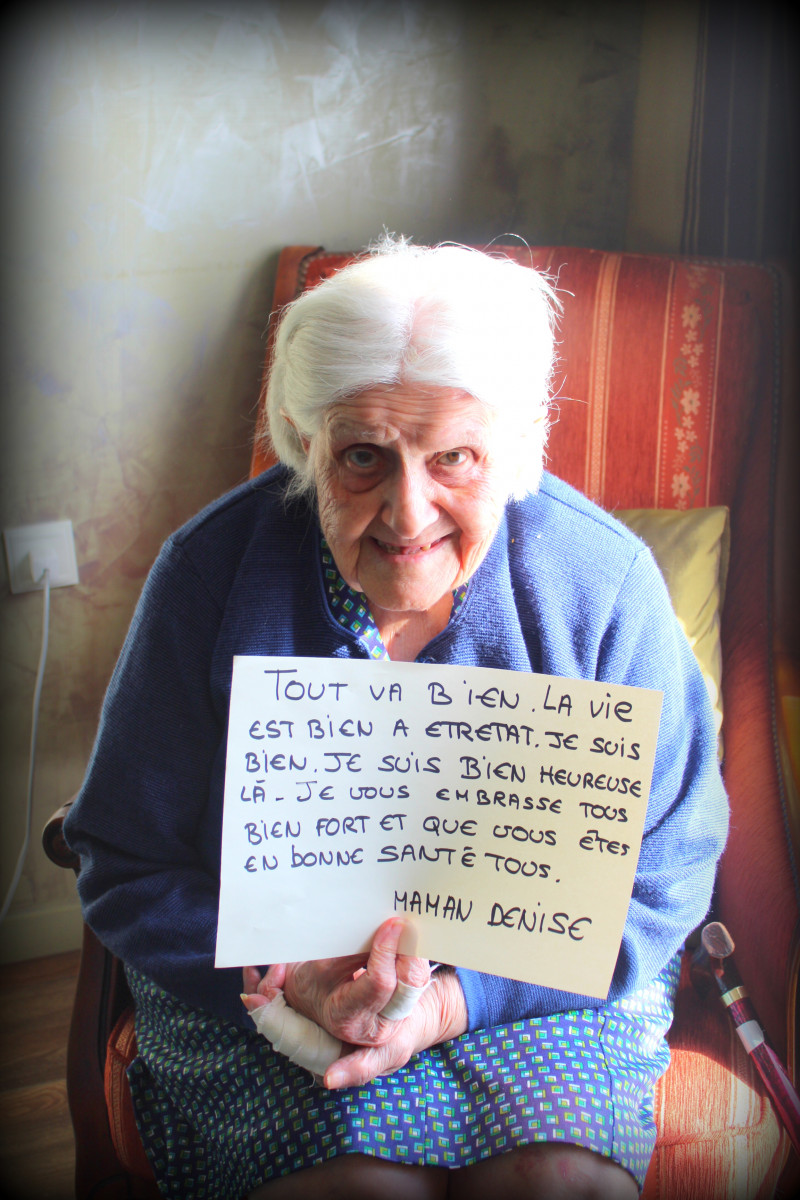 TOUT VA BIEN. LA VIE
EST BIEN A ETRETAT. JE SUIS
BIEN. JE SUIS BIEN HEUREUSE
LÀ - JE VOUS EMBRASSE TOUS
BIEN FORT ET QUE VOUS ÊTES
EN BONNE SANTÉ TOUS.
MAMAN DENISE